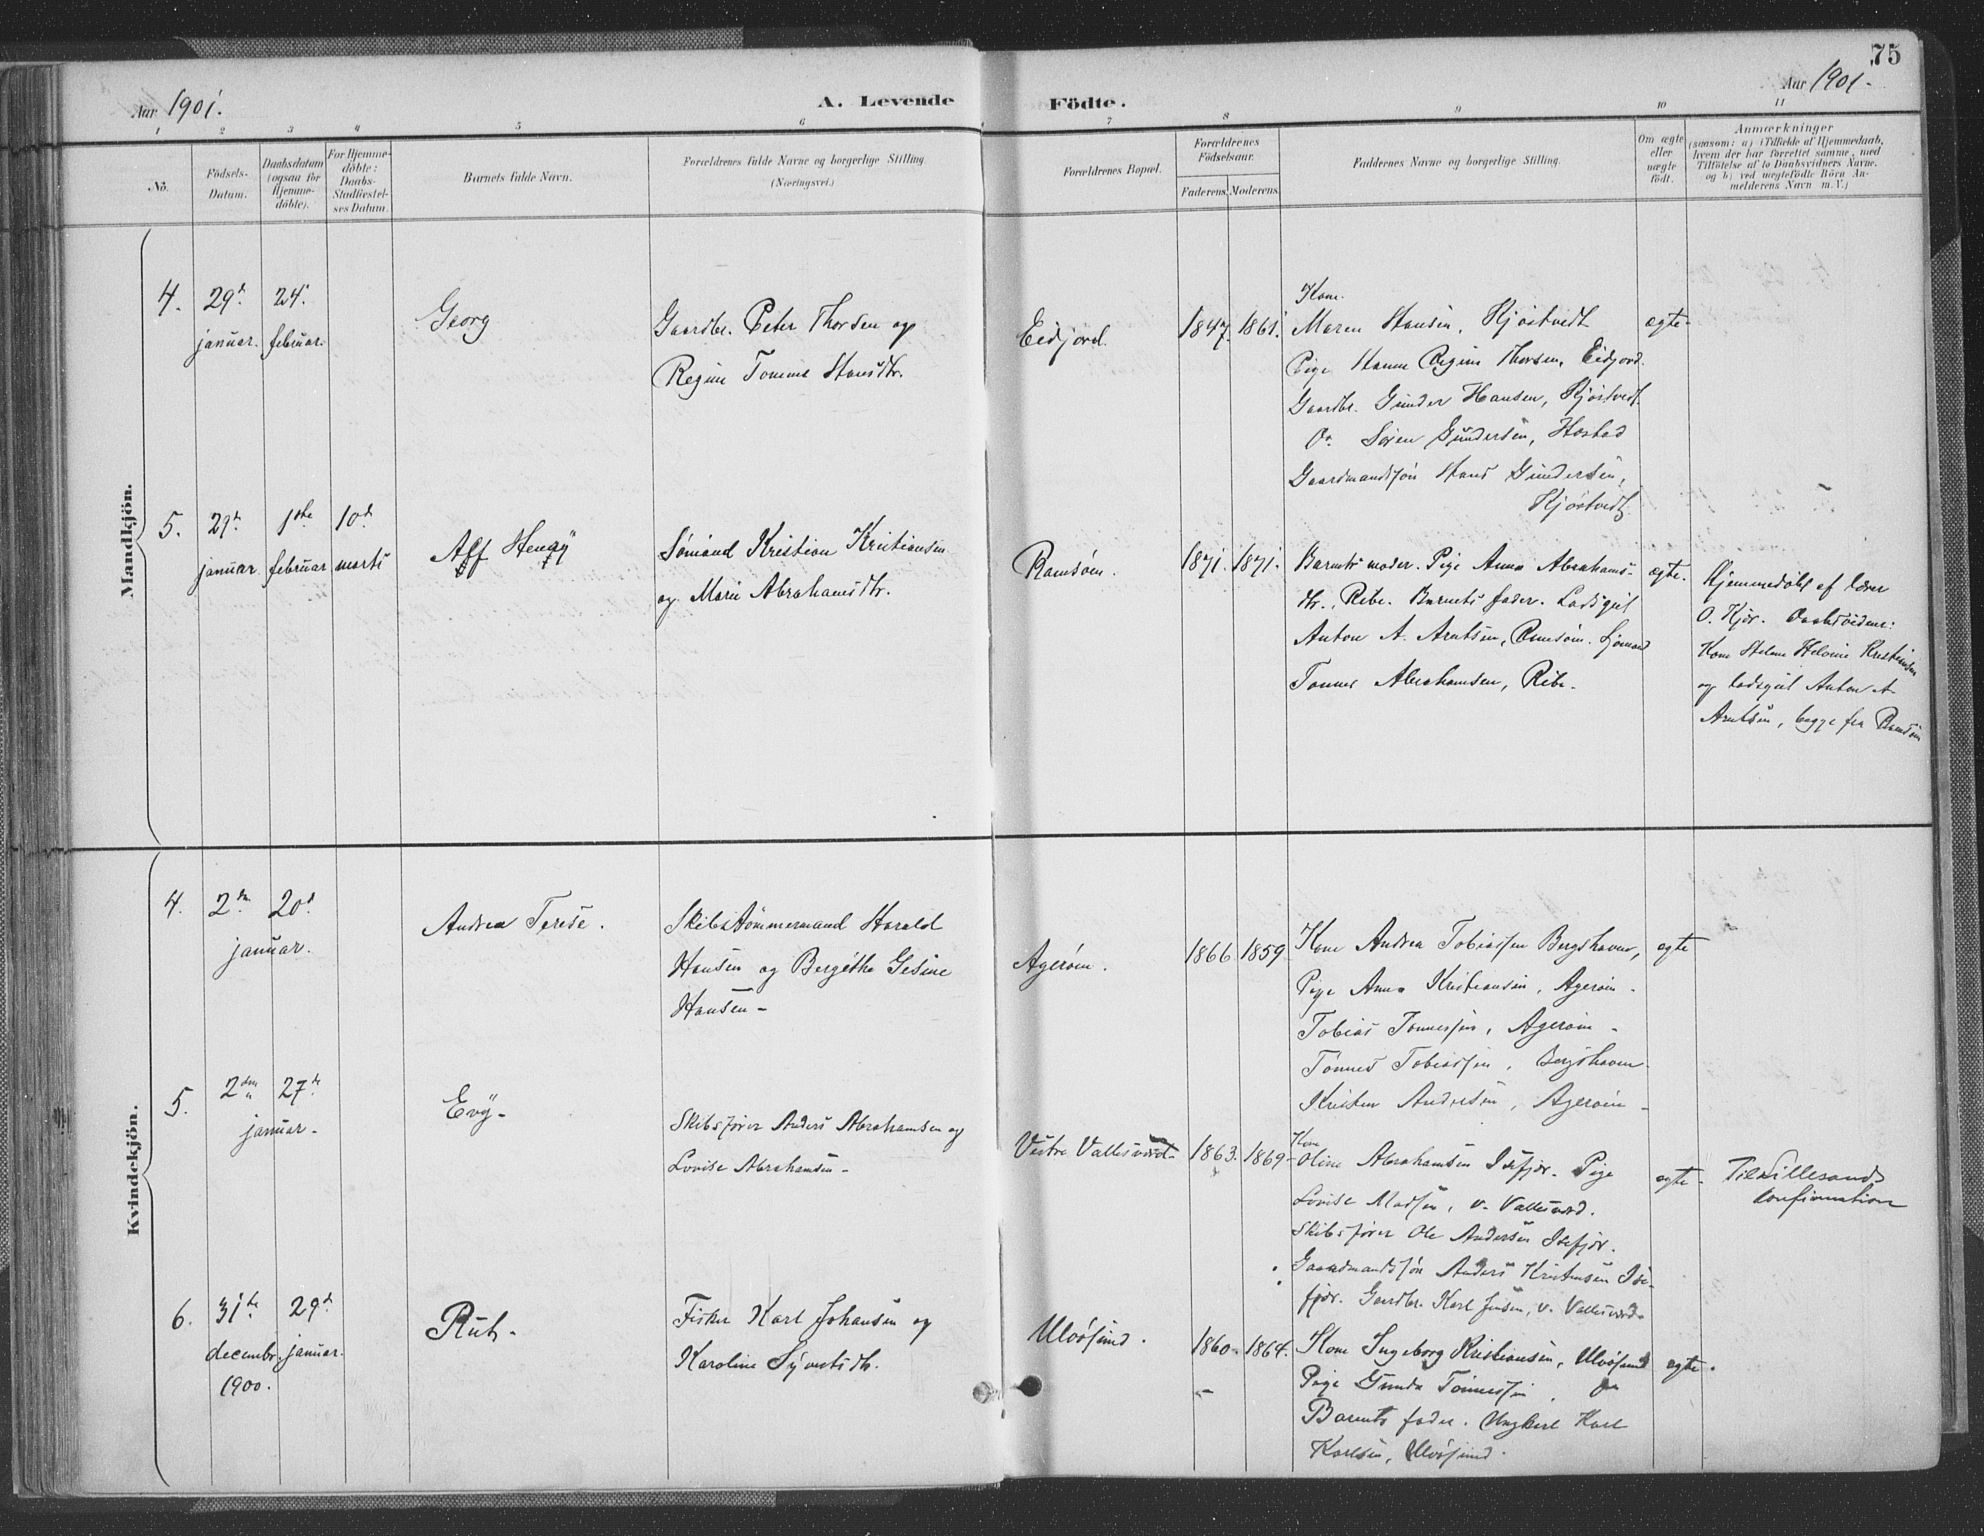 75
Aar 1901.
A. Levende Födte.
Aar 1901.
1 2 3 4 5 6 7 8 9 10 11
No.
Födsels-Datum.
Daabsdatum (ogsaa for Hjemme-döbte).
For Hjemme-döbte: Daabs-Stadfæstel-ses Datum.
Barnets fulde Navn.
Forældrenes fulde Navne og borgerlige Stilling
(Næringsvei.)
Forældrenes Bopæl.
Forældrenes Födselsaar.
Faderens. Moderens.
Faddrenes Navne og borgerlige Stilling.
Om ægte eller uægte født.
Anmærkninger
(saasom: a) i Tilfælde af Hjemmedaab,
hvem der har forrettet samme, med
Tilföielse af to Daabsvidners Navne.
og b) ved uægtefödte Börn An-
melderens Navn m. V.)
Mandkjön.
4.
29de januar.
24. februar.
Georg
Gaardbr. Peter Thorsen og
Regine Tomme Hansdtr.
Eidjord.
1847. 1861.
Kone
Maren Hansen, Kjöstvedt
Pige Hanne Regine Thorsen, Eidjord.
Gaardbr. Gunder Hansen, Kjöstvedt.
Do. Sören Gundersen, Hæstad
Gaardmandssön Hans Gundersen,
Kjöstvedt.
ægte.
5.
29de januar
1ste februar
10de marts
Alf Henry
Sömand Kristian Kristiansen
og Marie Abrahamsdtr.
Ramsöen.
1871. 1871.
Barnets moder. Pige Anna Abrahams-
dtr., Ribe. Barnets fader. Lodsgut
Anton A. Arntsen, Ramsöen. Sjömand
Tönnes Abrahamsen, Ribe.
ægte.
Hjemmedöbt af lærer
O. Kjær. Daabsvidner:
Kone Helene Kristiansen
og lodsgut Anton A.
Arntsen, begge fra Ramsöen
Kvindekjön.
4.
2den 20de
januar.
Andrea Terese.
Skibstömmermand Harald
Hansen og Bergitha Gesine
Hansen-
Ageröen.
1866 1859
Kone Andrea Tobiassen Bergshaven,
Pige Anna Kristiansen, Ageröen.
Tobias Tönnessen, Ageröen-
Tönnes Tobiassen, Bergshaven.
Kristen Andersen, Ageröen-
ægte
5.
2den 27de
januar-
Evy-
Skibsförer Anders Abrahamsen og
Lovise Abrahamsen-
Vestre Vallesværd-
1863. 1869-
Kone
Oline Abrahamsen Isefjær. Pige
Lovise Madsen, v. Vallesværd.
Skibsförer Ole Andersen Isefjær.
Gaardmandssön Anders Kristensen Ise-
fjær. Gaardbr. Karl Jensen, v. Vallesværd.
ægte-
Til Lillesands
Confirmation
6.
31te decembr. 1900.
29de januar.
Rut-
Fisker Karl Johansen og
Karoline Syvertsdtr.
Ulvösund.
1860- 1864.
Kone Ingeborg Kristiansen, Ulvösund
Pige Gunda Tönnessen, do
Barnets fader. Ungkarl Karl
Karlsen, Ulvösund.
ægte.